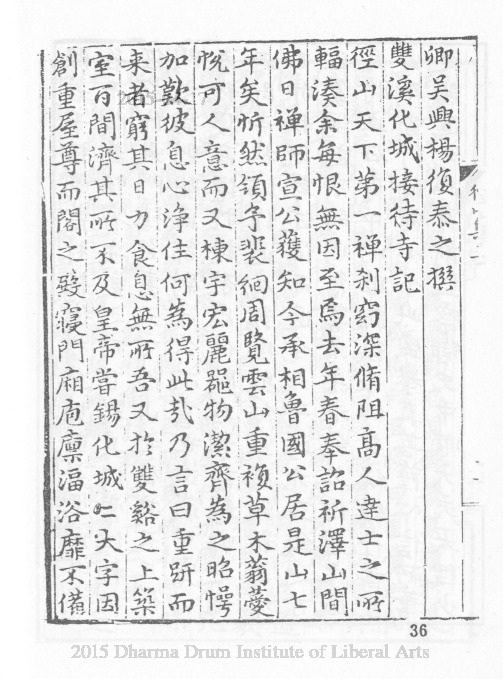 卿吳興楊復泰之撰
雙溪化城接待寺記
徑山天下第一禪刹窈深脩阻高人達士之所
輻湊余每恨無因至焉去年春奉詔祈澤山間
佛日禪師宣公獲知今丞相魯國公居是山七
年矣忻然領予裴徊周覽雲山重複草木蓊薆
恱可人意而又棟宇宏麗噐物潔齊為之昭愕
加歎彼息心浄住何為得此㢤乃言曰重趼而
来者窮其日力食息無所吾又於雙谿之上築
室百間濟其所不及皇帝甞錫化城二大字因
創重屋尊而閣之殿寢門廂庖廩湢浴靡不僃
36
2015 Dharma Drum Institute of Liberal Arts